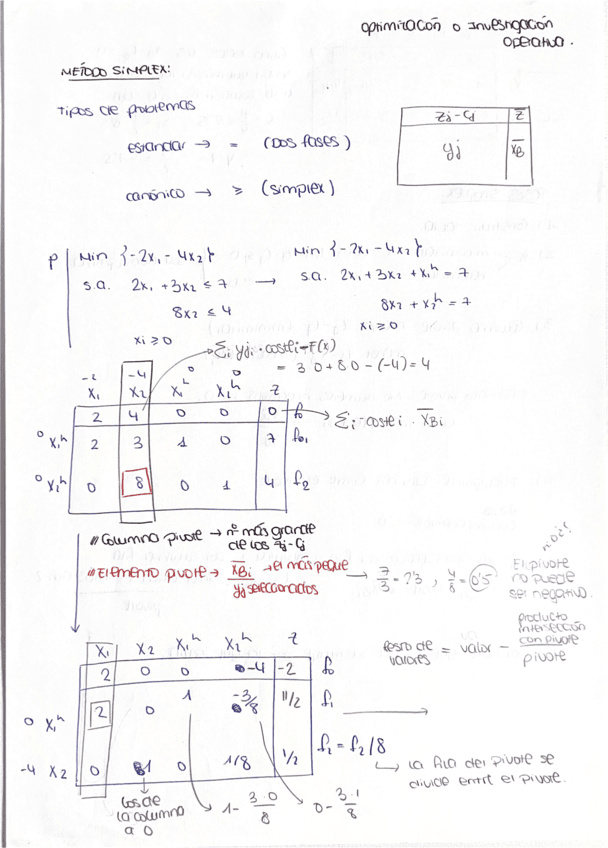 optimización o Investigación
operativa.
MÉTODO SIMPLEX:
Tipos de problemas
estandar → = (DOS fases)
canónico → ≥ (simplex)
Zj - Cj z̄
yj x̄B
P Min {-2x₁ - 4x₂} Min {-2x₁ - 4x₂}
s.a. 2x₁ + 3x₂ ≤ 7 → s.a. 2x₁ + 3x₂ + x₁ʰ = 7
8x₂ ≤ 4 8x₂ + x₂ʰ = 7
xi ≥ 0 xi ≥ 0
→ Σi yji · costei - F(x)
= 3·0 + 8·0 - (-4) = 4
-2 -4 0 0
x₁ x₂ x₁ʰ x₂ʰ z
2 4 0 0 0 f₀ → Σi · costei · x̄Bi
0 x₁ʰ 2 3 1 0 7 f₀₁
0 x₂ʰ 0 8 0 1 4 f₂
// Columna pivote → nº más grande
de los zj - cj
// Elemento pivote → x̄Bi / yj seleccionados → el más peque → 7/3 = 2'3 , 4/8 = 0'5
no 0?!
El pivote
no puede
ser negativo.
resto de valores = valor - producto intersección con pivote / pivote
x₁ x₂ x₁ʰ x₂ʰ z
2 0 0 -4 -2 f₀
0 x₁ʰ 2 0 1 -3/8 11/2 f₁ →
-4 x₂ 0 1 0 1/8 1/2 f₂ = f₂/8
↳ la fila del pivote se
divide entre el pivote.
los de
la columna
a 0
1 - 3·0/8
0 - 3·1/8